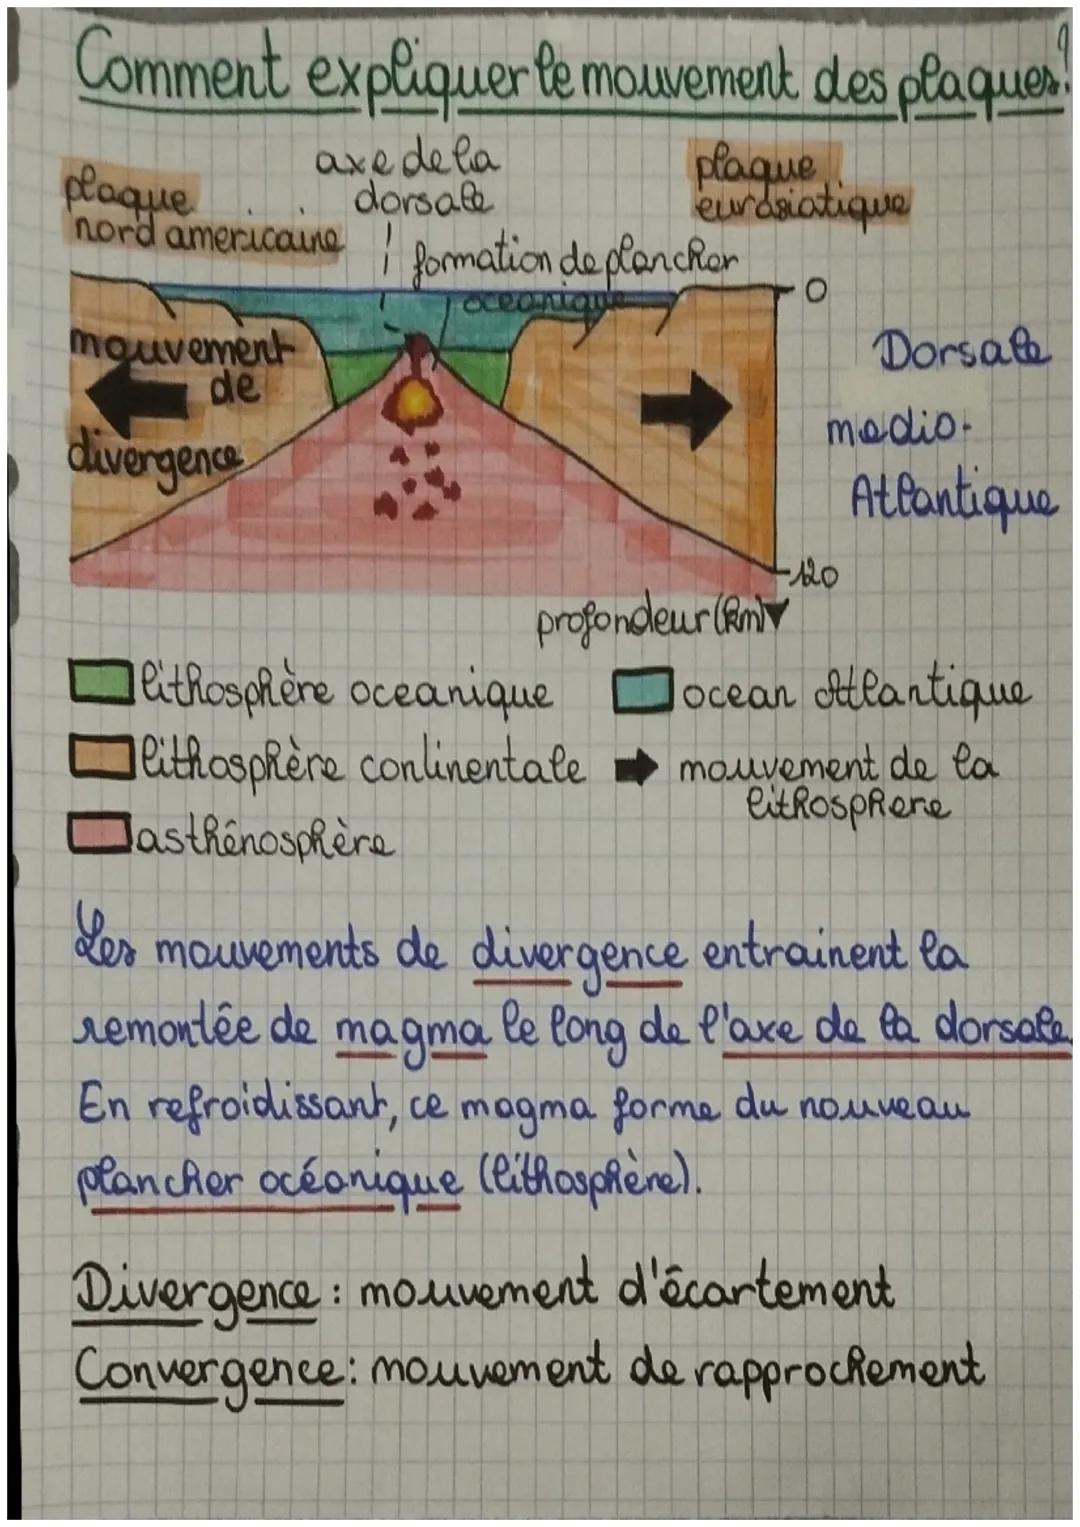 Comment expliquer le mouvement des plaques?
plaque
nord americaine
axe de la
dorsale
plaque
eurasiatique
formation de plancher
oceanique
0
mouvement
de
divergence
Dorsale
medio-
Atlantique
-120
profondeur (km)
lithosphère oceanique
ocean Atlantique
lithosphère continentale
mouvement de la
lithosphere
asthénosphère
Les mouvements de divergence entrainent la
remontée de magma le long de l'axe de la dorsale.
En refroidissant, ce magma forme du nouveau
plancher océanique (lithosphère).
Divergence : mouvement d'écartement
Convergence : mouvement de rapprochement